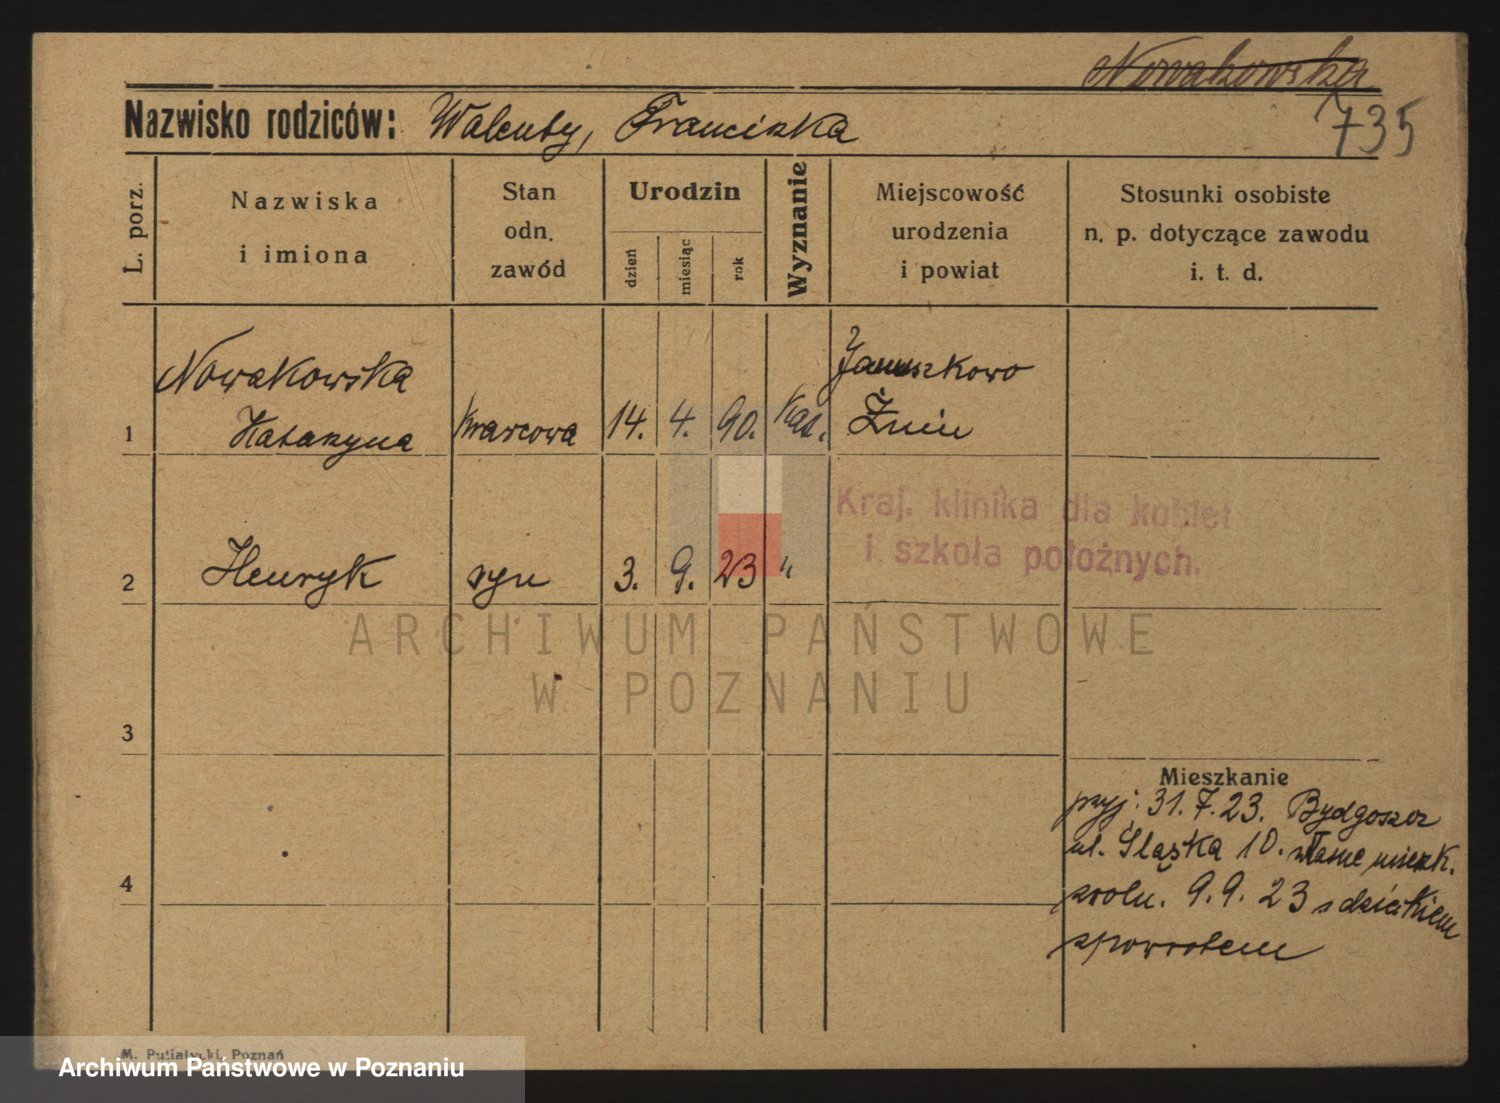 Nowakowska
735
Nazwisko rodziców: Walenty, Franciszka
L. porz.
Nazwiska
i imiona
Stan
odn.
zawód
Urodzin
dzień
miesiąc
rok
Wyznanie
Miejscowość
urodzenia
i powiat
Stosunki osobiste
n. p. dotyczące zawodu
i. t. d.
Nowakowska Januszkowo
1 Katarzyna krawcowa 14. 4. 90. Kat. Żnin
Kraj. klinika dla kobiet
i szkoła położnych.
2 Henryk syn 3. 9. 23 "
ARCHIWUM PAŃSTWOWE
W POZNANIU
3
Mieszkanie
przyj. 31.7.23. Bydgoszcz
ul. Śląska 10. własne mieszk.
4
zwoln. 9.9.23 z dzieckiem
zpowrotem
M. Putiatycki, Poznań
Archiwum Państwowe w Poznaniu